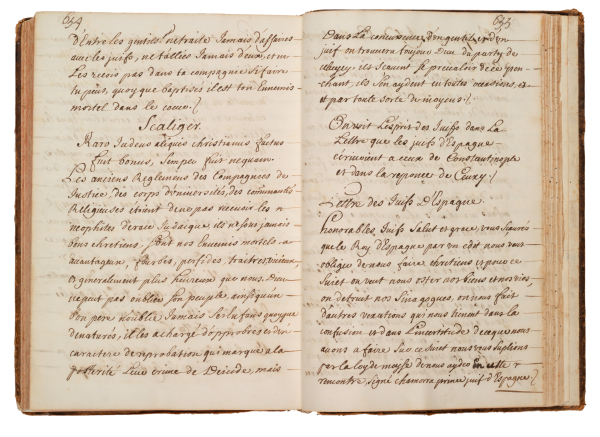 654
d'Entre les gentils! ne traite Jamais d'affaires
avec les juifs, ne t'allies Jamais d'eux, et ne
Les recois pas dans ta compagnie si faire
tu peus, quoy que baptisés il est ton Ennemis
mortel dans le coeur./
Scaliger.
Raro Judeus aliquis christianus factus
fuit bonus, semper fuit nequam.
Les anciens Reglemens des Compagnies de
Justice, des corps d'université, des communautés
Religieuses étoient de ne pas recevoir les
neophites de race Judaique, ils ne sont jamais
bons chretiens, sont nos Ennemis mortels
avantageux, fourbes, perfides, traitres, vicieux,
et generalement plus heureux que nous. Dieu
ne peut pas oublier son peuple, ainsi qu'un
bon pere n'oublie Jamais ses Enfans quoyque
denaturés, il les a chargé d'opprobres et d'un
caractere de reprobation qui marque a la
posterité Leur crime de Deicide, mais
655
Dans La concurrence d'un gentil et d'un
juif on trouvera toujours Dieu du party de
celuicy, ils scavent se prevaloir de ce pen-
chant, ils s'en aydent en toutes occasions, et
et par toute sorte de moyens./.
On voit L'esprit des Juifs dans La
Lettre que les juifs d'Espagne
ecrivoient a ceux de Constantinople
et dans la reponce de Ceuxy./
Lettre des Juifs D'Espagne.
honorables Juifs Salut et grace, vous sçaurés
que le Roy d'Espagne par un edit nous veut
obliger de nous faire chretiens et pour ce
sujet on veut nous oster nos biens et nos vies,
on detruit nos sinagogues, on nous fait
d'autres vexations qui nous tiennent dans la
confusion et dans L'incertitude de ce que nous
avons a faire sur ce sujet nous vous suplions
par la loy de moyse de nous ayder en cette
rencontre, signé chamorra prince juif d'Espagne./